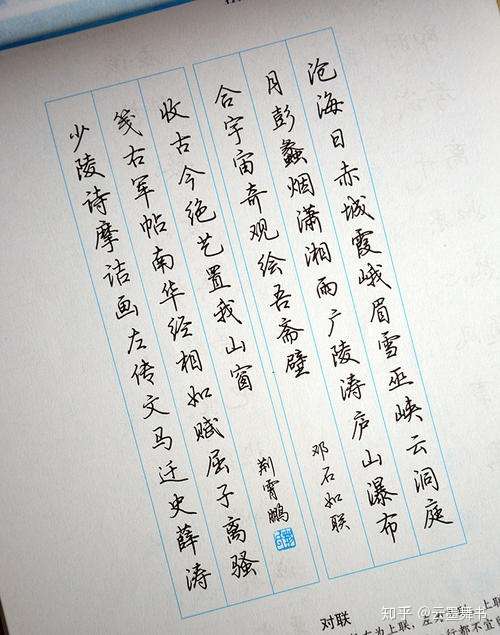 沧海日赤城霞峨眉雪巫峡云洞庭
月彭蠡烟潇湘雨广陵涛庐山瀑布
合宇宙奇观绘吾斋壁
邓石如联
少陵诗摩诘画左传文马迁史薛涛
笺右军帖南华经相如赋屈子离骚
收古今绝艺置我山窗
荆霄鹏
对联
为上联，左
知乎 @云墨舞书